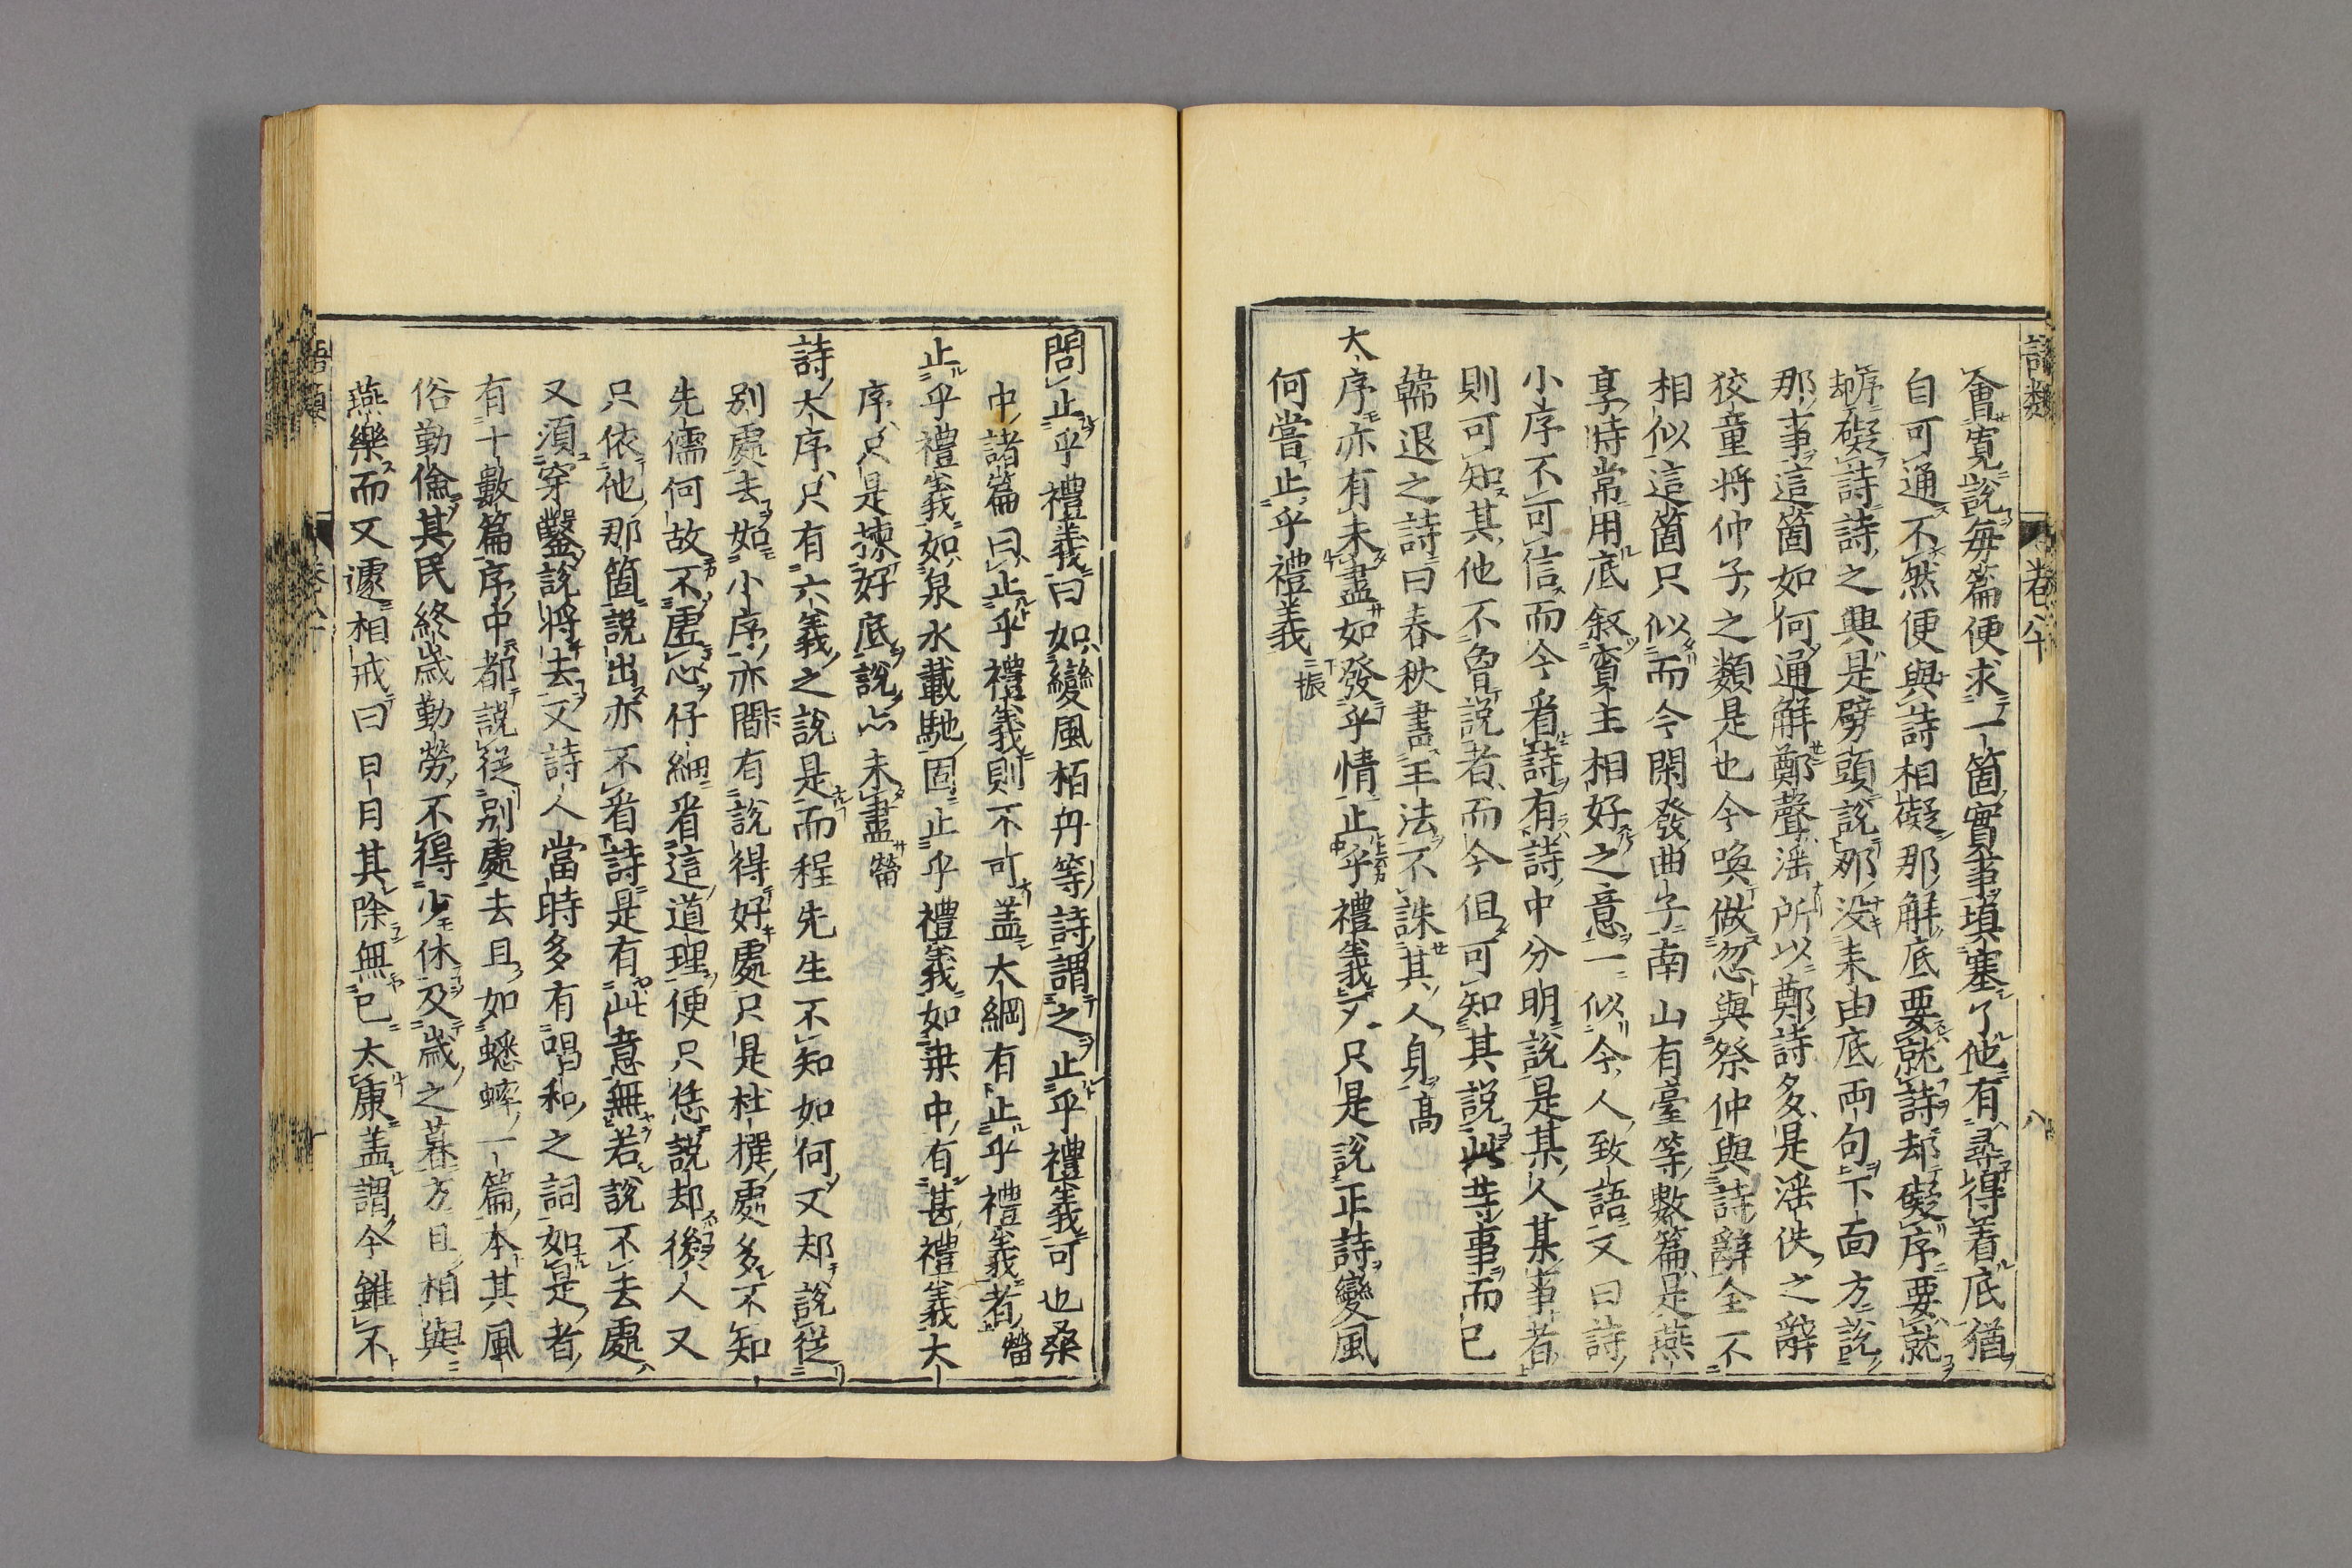 語類 卷八十 八
會寛說每篇便求一箇實事填塞了他有尋得着底猶
自可通不然便與詩相礙那解底要就詩却礙序要就
序却礙詩詩之興是劈頭說那沒来由底两句下面方說
那事這箇如何通解鄭聲滛所以鄭詩多是滛佚之辭
狡童將仲子之類是也今喚做忽與祭仲與詩辭全不
相似這箇只似而今閑發曲子南山有臺等數篇是燕
享時常用底叙賓主相好之意一似今人致語又曰詩
小序不可信而今看詩有詩中分明說是某人某事者
則可知其他不會說者而今但可知其說此等事而已
韓退之詩曰春秋書王法不誅其人身高
大序亦有未盡如發乎情止乎禮義又只是說正詩變風
何嘗止乎禮義振
問止乎禮義曰如變風栢舟等詩謂之止乎禮義可也桑
中諸篇曰止乎禮義則不可盖大綱有止乎禮義者㽦
止乎禮義如泉水載馳固止乎禮義如桒中有甚禮義大
序只是揀好底說亦未盡㽦
詩大序只有六義之說是而程先生不知如何又却說從
别處去如小序亦間有說得好處只是杜撰處多不知
先儒何故不虚心仔細看這道理便只恁說却後人又
只依他那箇說出亦不看詩是有此意無若說不去處
又須穿鑿說將去又詩人當時多有唱和之詞如是者
有十數篇序中都說從别處去且如蟋蟀一篇本其風
俗勤儉其民終歲勤勞不得少休及歲之暮方且相與
燕樂而又遽相戒曰日月其除無已太康盖謂今雖不
語類 卷八十